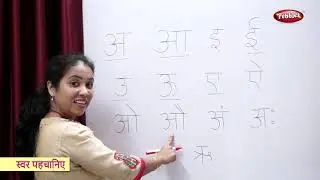 Pebbles
अ आ इ ई
उ ऊ ए ऐ
ओ औ अं अः
ऋ
स्वर पहचानिए